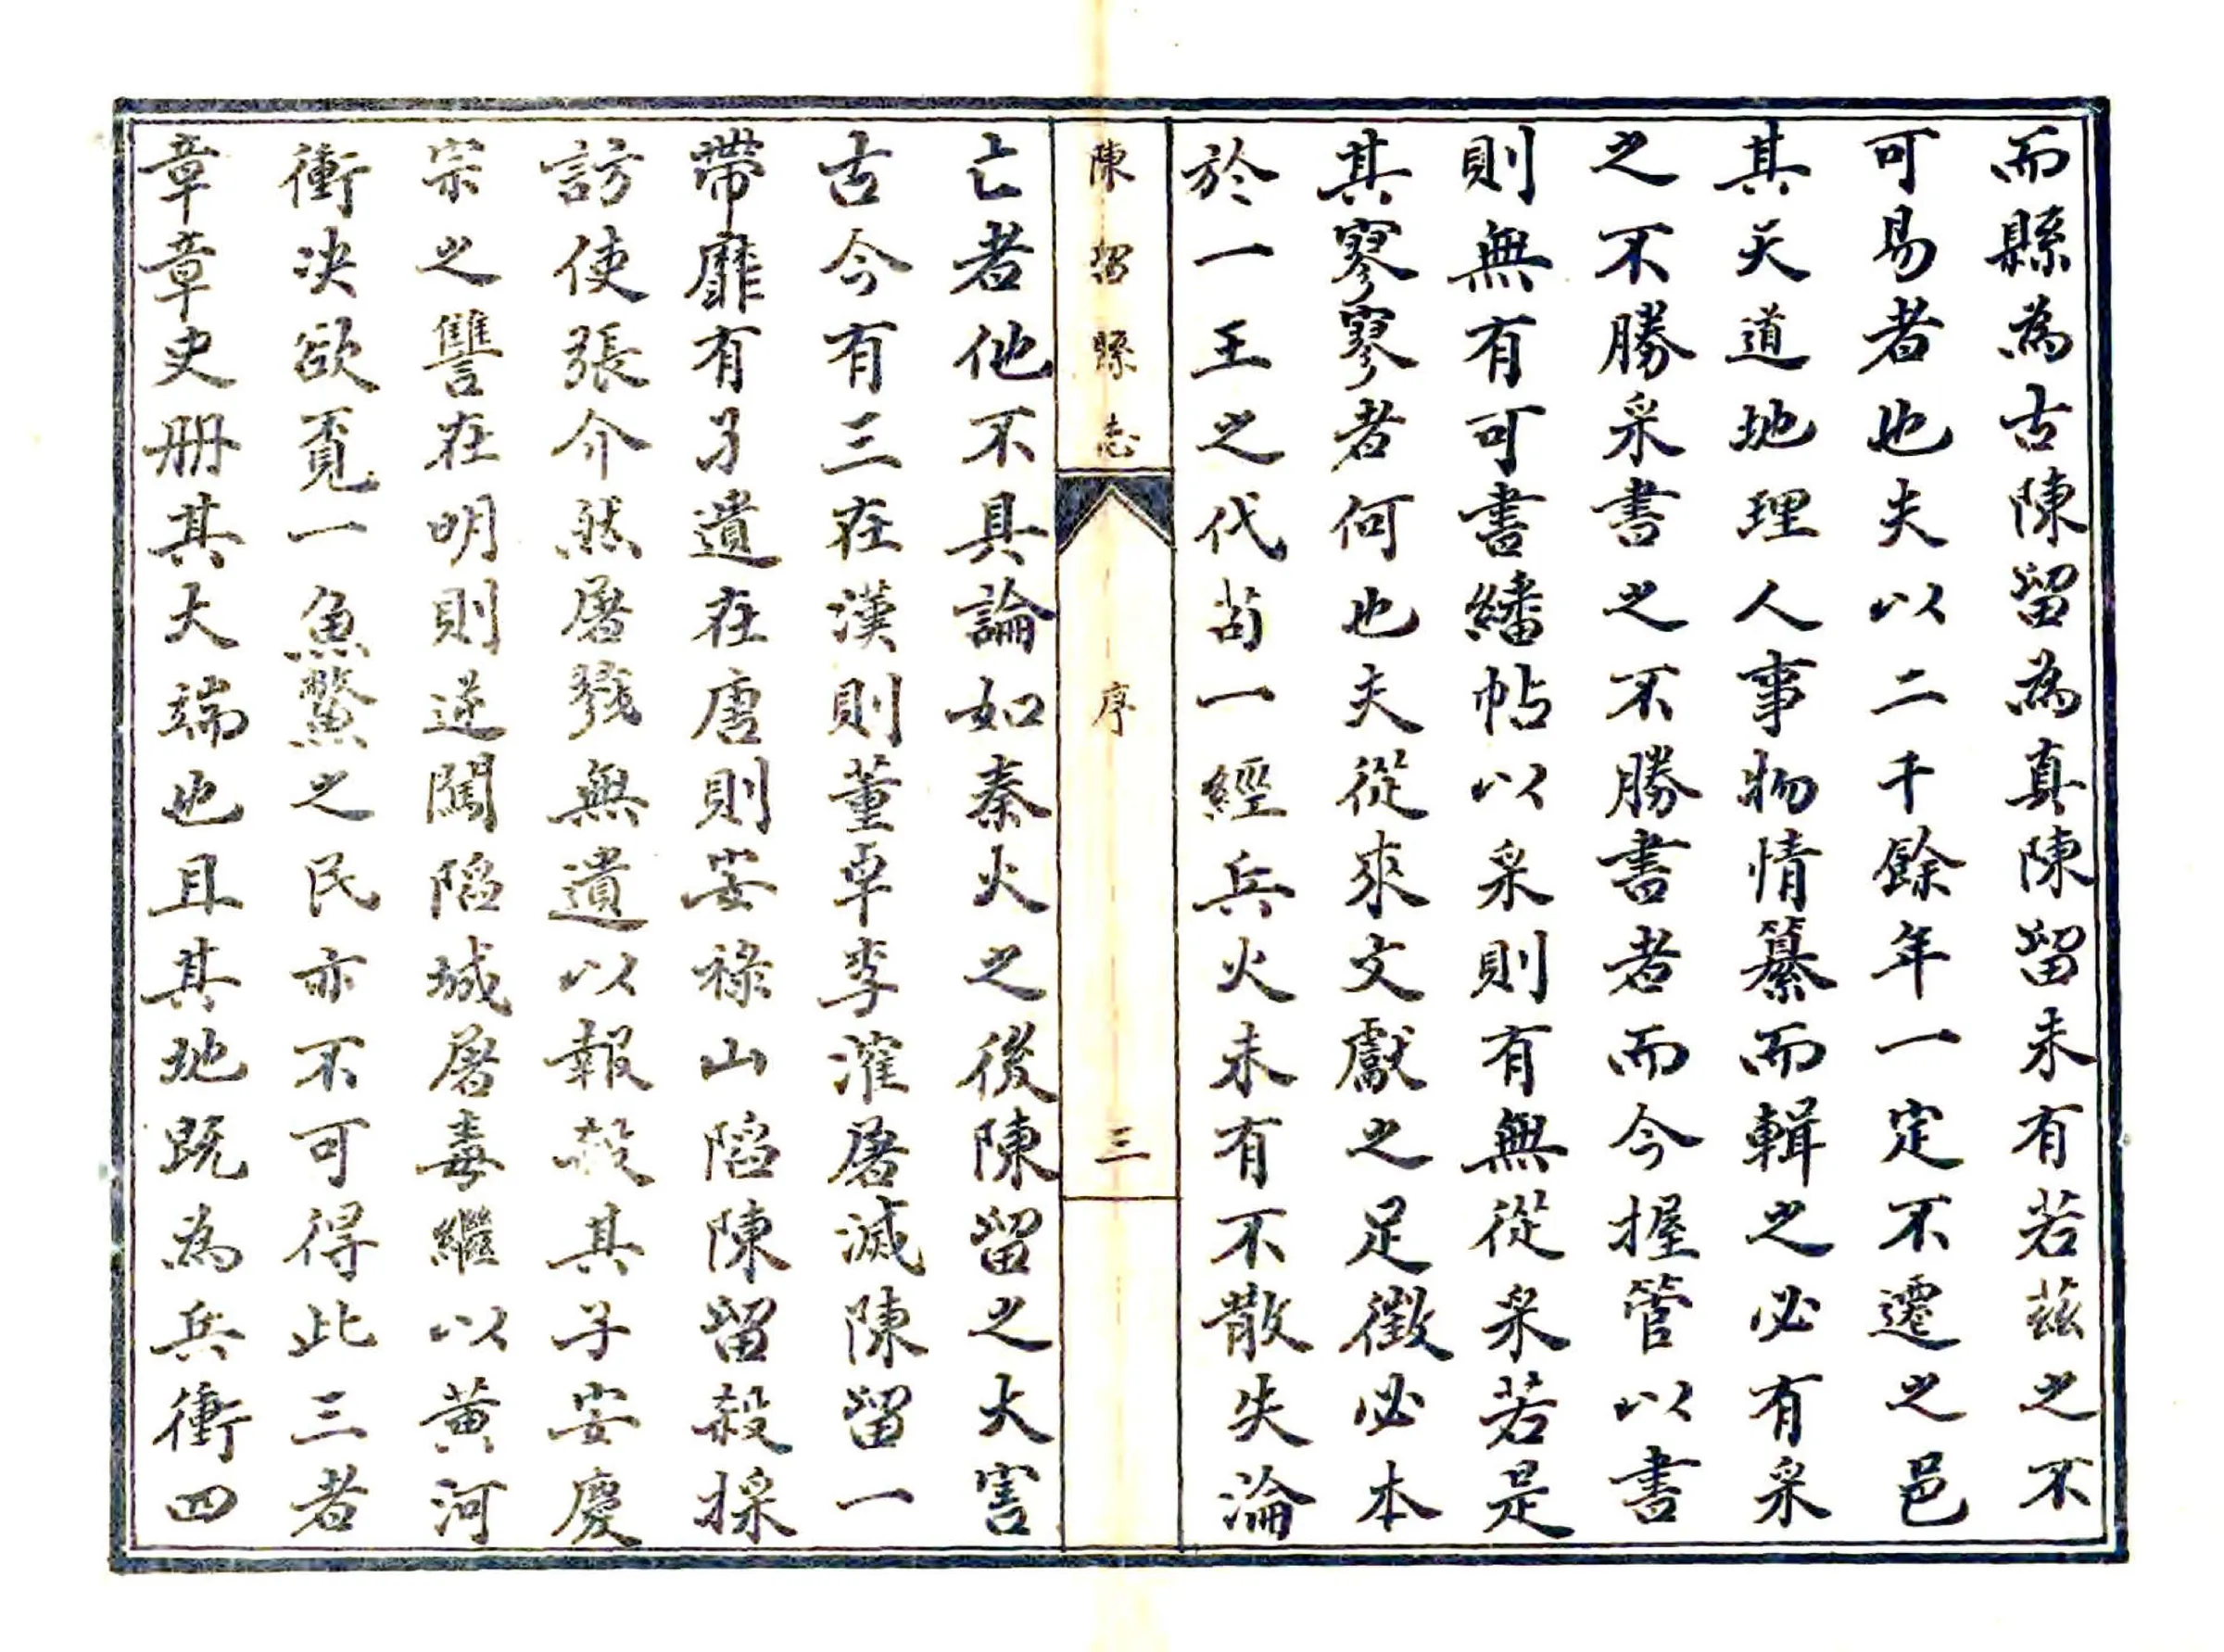 而縣為古陳留為真陳留未有若茲之不
可易者也夫以二千餘年一定不遷之邑
其天道地理人事物情纂而輯之必有采
之不勝采書之不勝書者而今握管以書
則無有可書繙帖以采則有無從采若是
其寥寥者何也夫從來文獻之足徵必本
於一王之代苟一經兵火未有不散失淪
陳留縣志
序
三
亡者他不具論如秦火之後陳留之大害
古今有三在漢則董卓李漼屠滅陳留一
帶靡有孑遺在唐則安祿山陷陳留殺採
訪使張介然屠戮無遺以報殺其子安慶
宗之讐在明則逆闖陷城屠毒繼以黃河
衝决欲覓一魚鱉之民亦不可得此三者
章章史册其大端也且其地既為兵衝四